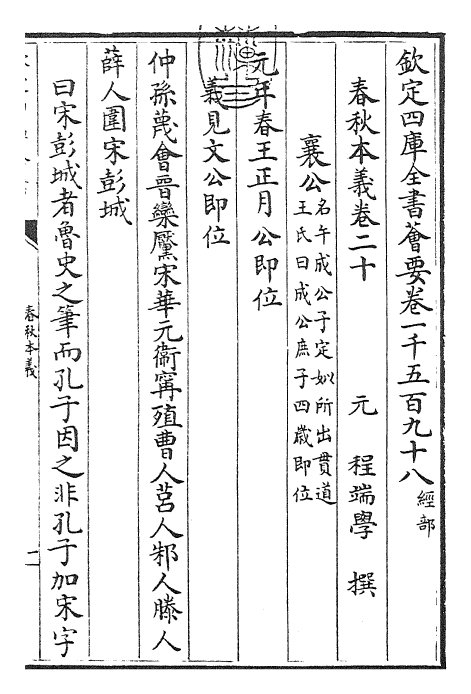 欽定四庫全書薈要卷一千五百九十八經部
春秋本義卷二十
元 程端學 撰
襄公名午成公子定姒所出貫道
王氏曰成公庶子四歲即位
元年春王正月公即位
義見文公即位
仲孫蔑會晉欒黶宋華元衞甯殖曹人莒人邾人滕人
薛人圍宋彭城
曰宋彭城者魯史之筆而孔子因之非孔子加宋字
春秋本義
一